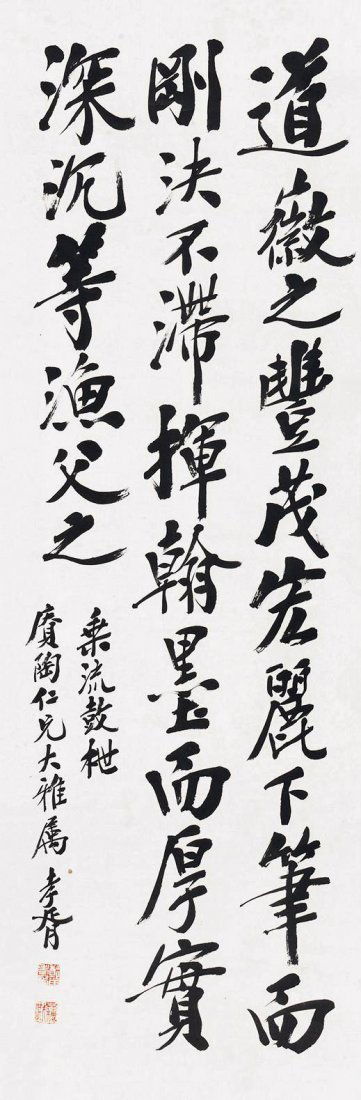 道徽之豐茂宏麗下筆而
剛決不滯揮翰墨而厚實
深沉等漁父之
乘流鼓枻
賡陶仁兄大雅屬 孝胥